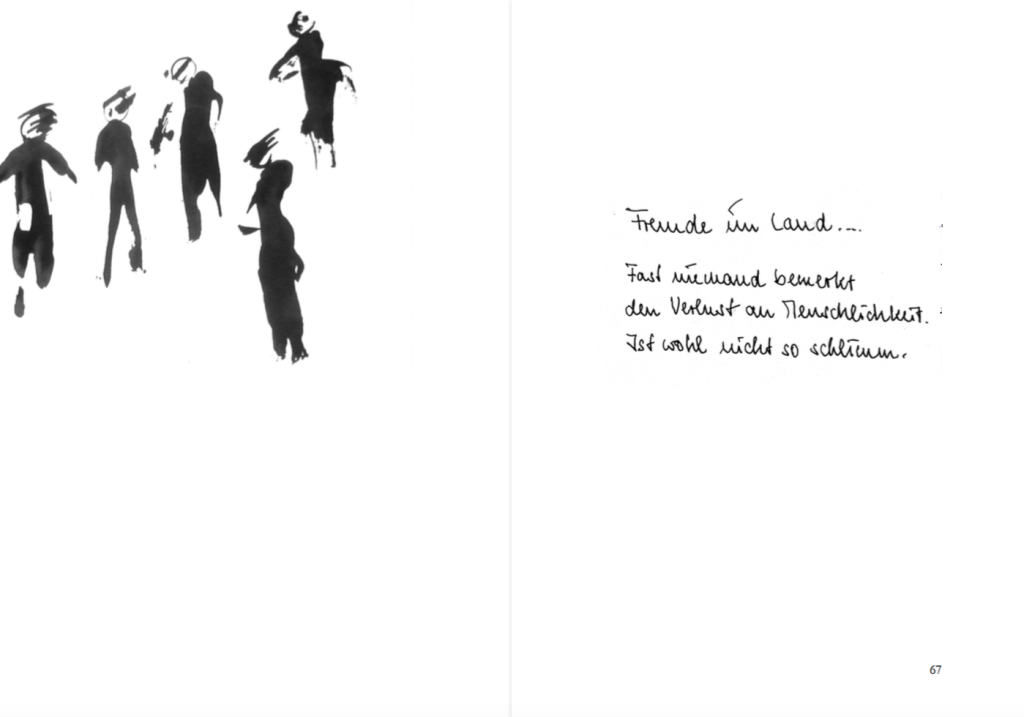 Fremde im Land...
Fast niemand bemerkt
den Verlust an Menschlichkeit.
Ist wohl nicht so schlimm.
67